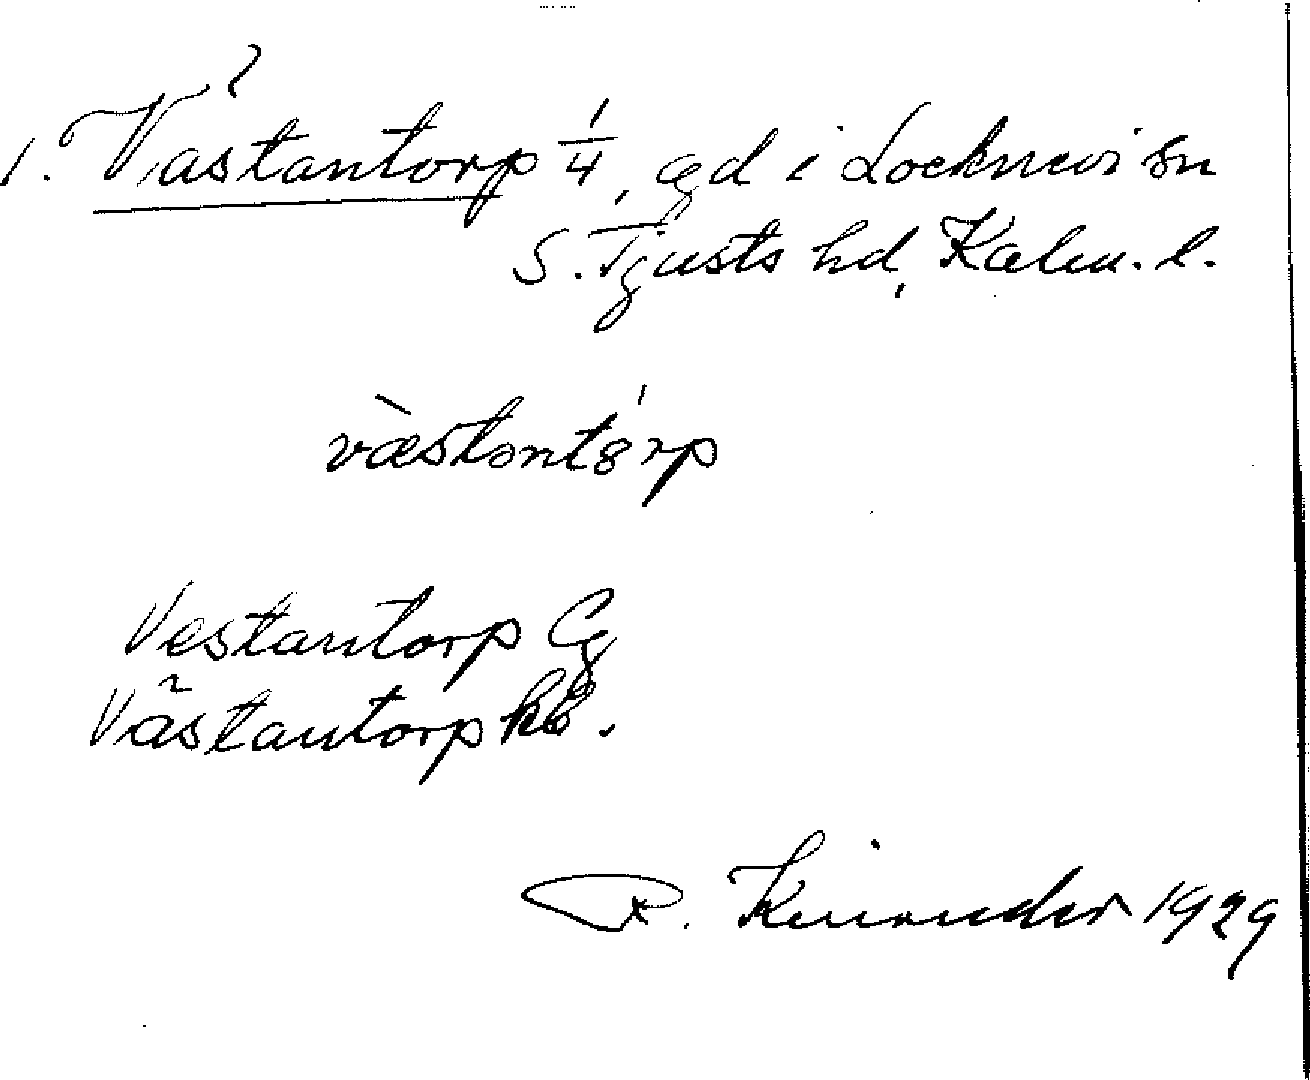 1. Västantorp 1/4, gd i Locknevi sn
S. Tjusts hd, Kalm. l.
væstantorp
Vestantorp Cg
Västantorp kb.
R. Kinander 1929